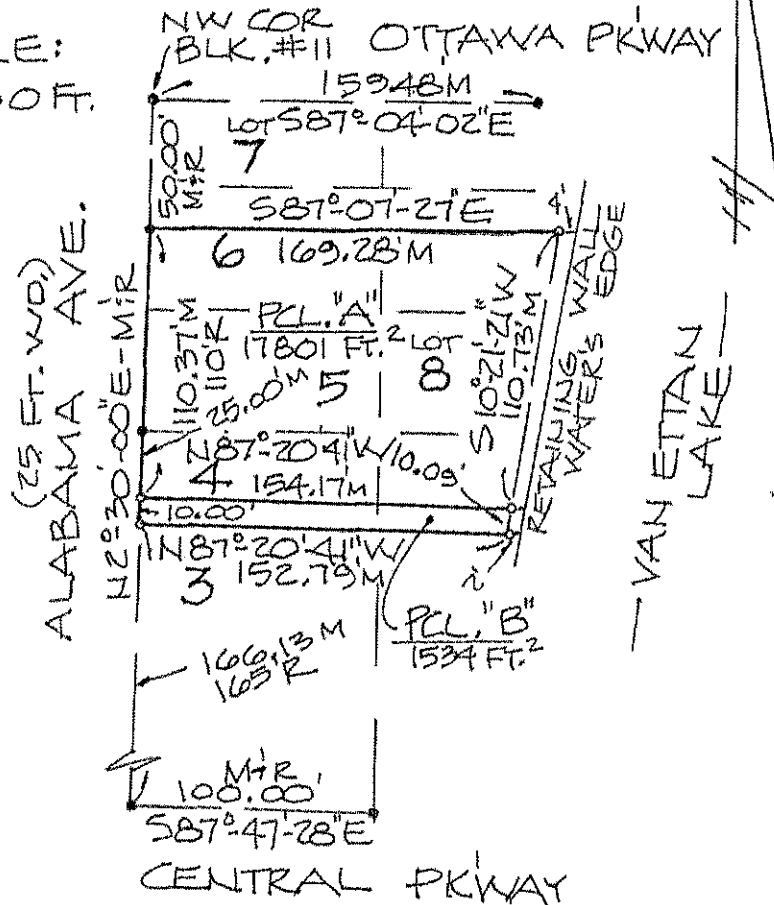 LE:
0 FT.
NW COR
BLK. #11
OTTAWA PK'WAY
159.48 M
LOT S87°-04'-02"E
7
50.00'
M&R
S87°-07'-27"E
6 169.28'M
4'
(25 FT. WD.)
ALABAMA AVE.
N2°30'-00"E-M&R
110.37'M
110'R
PCL. "A"
17801 FT.²
LOT
8
5
25.00'M
S10°-21'-21"W
110.73'M
RETAINING WALL
WATER'S EDGE
VAN ETTAN
LAKE
N87°-20'41"W
10.09'
4 154.17'M
10.00'
N87°-20'41"W
3 152.79'M
PCL. "B"
1534 FT.²
166.13 M
165' R
M&R
100.00'
S87°-47'-28"E
CENTRAL PK'WAY